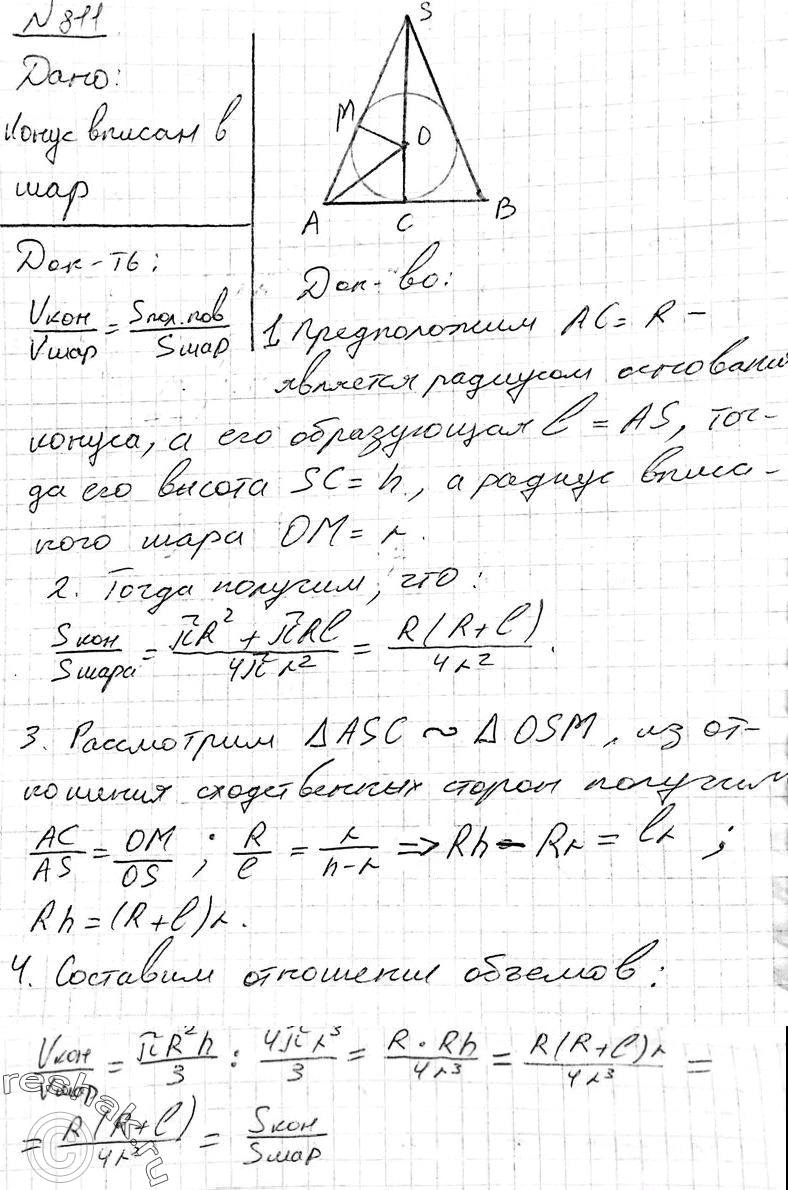 N 811
Дано:
Конус вписан в
шар
Док-ть:
Vкон/Vшар = Sпол.пов/Sшар
S
M
O
A
C
B
Док-во:
1. Предположим AC = R –
является радиусом основания
конуса, а его образующая l = AS, тог-
да его высота SC = h, а радиус вписа-
ного шара OM = r.
2. Тогда получим, что:
Sкон/Sшара = (πR² + πRl)/(4πr²) = R(R+l)/(4r²).
3. Рассмотрим ΔASC ~ ΔOSM, из от-
ношения сходственных сторон получим
AC/AS = OM/OS ; R/l = r/(h-r) => Rh - Rr = lr ;
Rh = (R+l)r.
4. Составим отношение объемов:
Vкон/Vшар = πR²h/3 : 4πr³/3 = R·Rh/(4r³) = R(R+l)r/(4r³) =
= R(R+l)/(4r²) = Sкон/Sшар
© reshak.ru